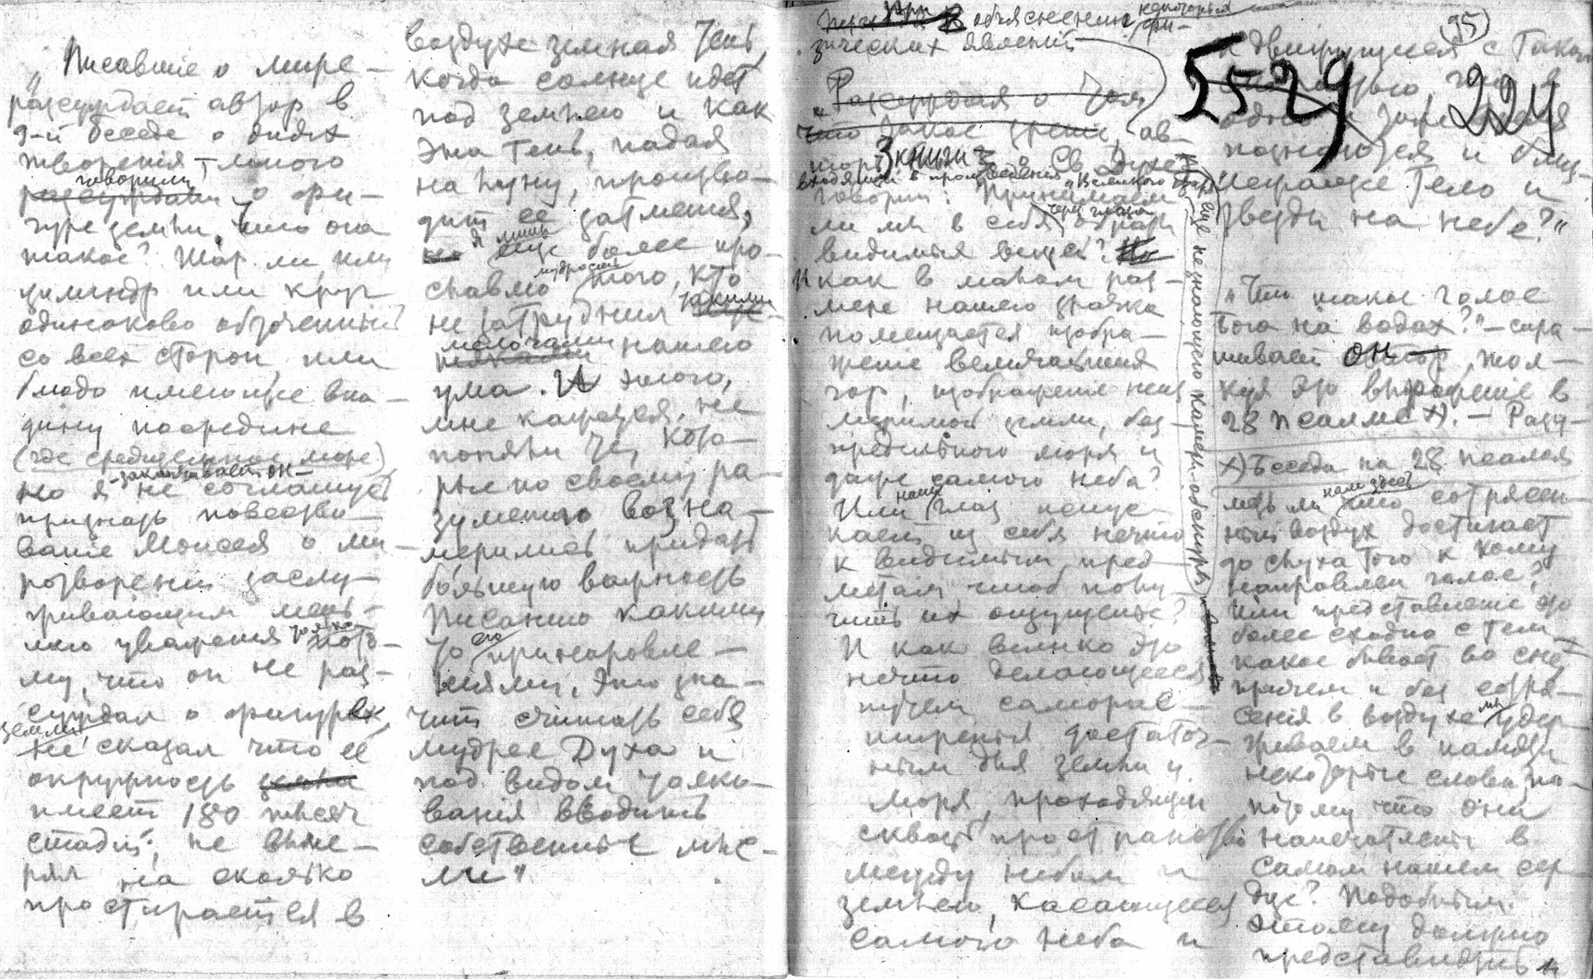 „Писавшие о мире —
рассуждает автор в
9-й беседе о днях
творенія — много
говорили о фи-
гуре земли, что она
такое? Шар ли, или
цилиндр или круг
одинаково обточенный
со всех сторон, или
блюдо имеющее впа-
дину посредине
(где средиземное море)
— заканчивает он —
Но я не соглашусь
признать повество-
ваніе Моисея о ми-
ротворении заслу-
живающим мень-
шего уваженія только пото-
му, что он не раз-
суждал о фигурах,
земли
не сказал что её
окружность
имеет 180 тысяч
стадий, не выме-
рял на сколько
простирается в
воздухе земная тень,
когда солнце идет
под землею и как
эта тень, падая
на луну, произво-
дит ее затменія,
Я лишь еще более про-
славлю мудрость того, кто
не затруднил такими
мелочами нашего
ума. И этого,
мне кажется, не
поняли те, кото-
рые по своему ра-
зумению возна-
мерились придать
большую важность
Писанию какими
то его приноровле-
ніями, это зна-
чит считать себя
мудрее Духа и
под видом толко-
ванія вводить
собственные мыс-
ли“.
При объяснении некоторых фи-
зических явлений
Рассуждая о том
что такое зреніе, ав-
тор 3 книги Св. Духе
входящей в произведения „Великого
говорит: „Принимаем
ли мы в себя через зрачки образы
видимых вещей?
И как в малом раз-
мере нашего зрачка
помещается изобра-
жение величайших
гор, изображение неиз-
меримой земли, бес-
предельного моря и
даже самого неба?
Или наш глаз испус-
кает из себя нечто
к видимым пред-
метам чтоб полу-
чить их ощущение?
И как велико это
нечто делающееся
путем саморас-
ширенія достаточ-
ным для земли и
моря, проходящим
сквозь пространство
между небом и
землею, касающееся
самого неба и
еще не знающего камеры-обскуры
95
5529
224
и движущееся с такою
что в
одно и
познаются и близ-
лежащее тело и
звезды на небе?“
„Что такое голос
Бога на водах?“ — спра-
шивает он, тол-
куя это выражение в
28 псалме х). — Разу-
х) Беседа на 28 псалом
меть ли нам здесь сотрясен-
ный воздух достигает
до слуха того к кому
направлен голос?
Или представление это
более сходно с тем
какое бывает во сне
причем и без сотря-
сенія в воздухе мы удер-
живаем в памяти
некоторые слова, по-
потому что они
напечатлены в
самом нашем сер-
дце? Подобным.
этому должно
представлять и